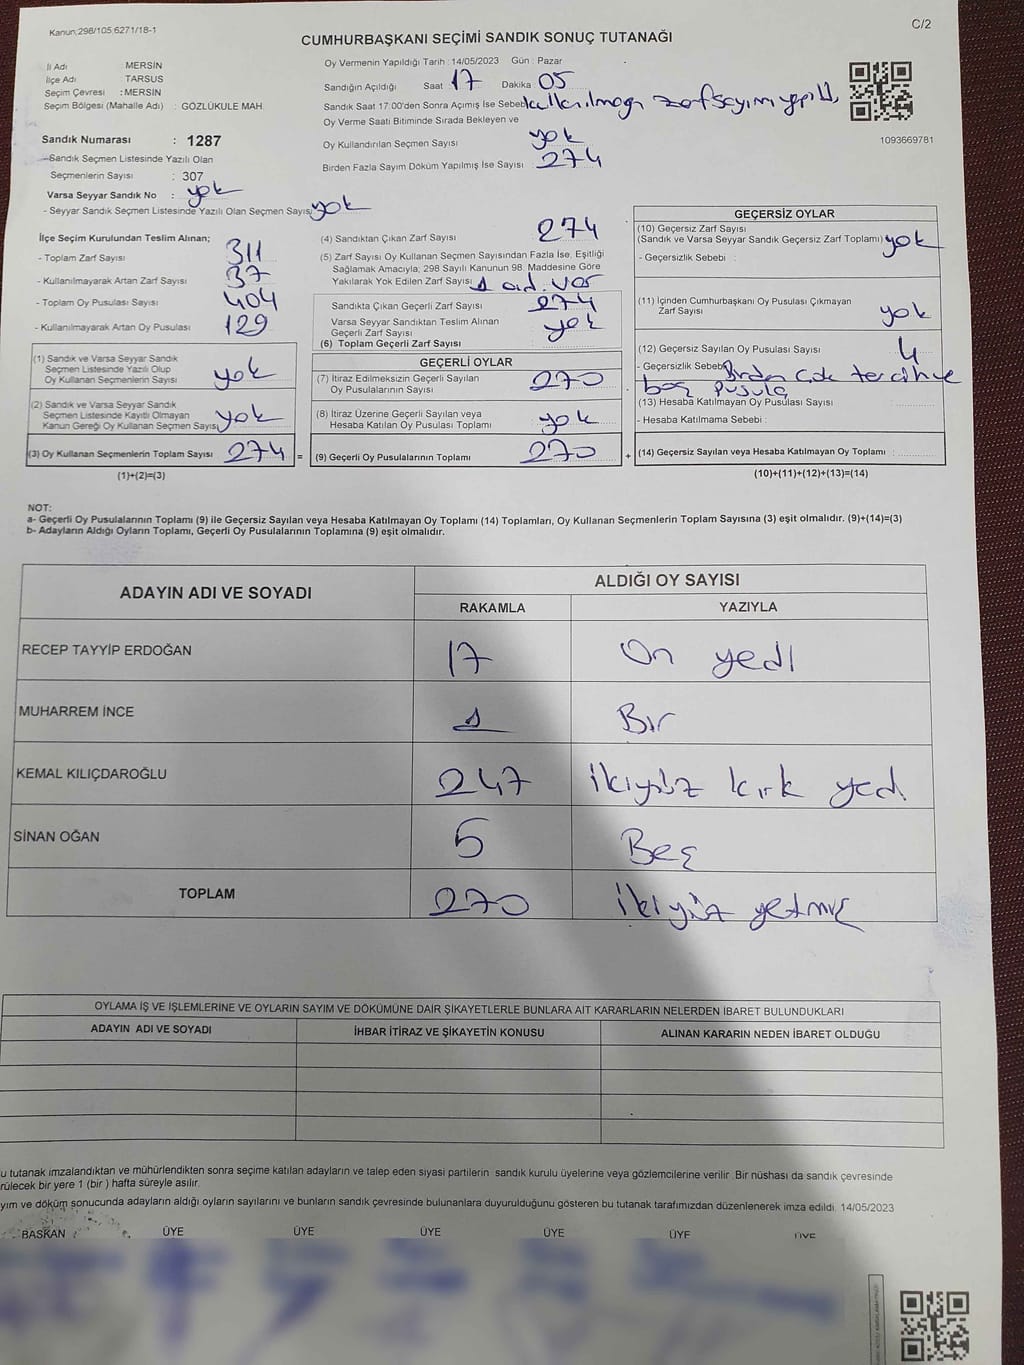 Kanun;298/105,6271/18-1
C/2
CUMHURBAŞKANI SEÇİMİ SANDIK SONUÇ TUTANAĞI
İl Adı : MERSİN
İlçe Adı : TARSUS
Seçim Çevresi : MERSİN
Seçim Bölgesi (Mahalle Adı) : GÖZLÜKULE MAH.
Oy Vermenin Yapıldığı Tarih : 14/05/2023 Gün : Pazar
Sandığın Açıldığı Saat 17 Dakika 05
Sandık Saat 17:00'den Sonra Açımış İse Sebebi kullanılmayan zarf sayımı yapıldı.
Oy Verme Saati Bitiminde Sırada Bekleyen ve
Oy Kullandırılan Seçmen Sayısı yok
Birden Fazla Sayım Döküm Yapılmış İse Sayısı 274
1093669781
Sandık Numarası : 1287
Sandık Seçmen Listesinde Yazılı Olan
Seçmenlerin Sayısı : 307
Varsa Seyyar Sandık No : yok
- Seyyar Sandık Seçmen Listesinde Yazılı Olan Seçmen Sayısı yok
İlçe Seçim Kurulundan Teslim Alınan;
- Toplam Zarf Sayısı 311
- Kullanılmayarak Artan Zarf Sayısı 37
- Toplam Oy Pusulası Sayısı 404
- Kullanılmayarak Artan Oy Pusulası 129
(1) Sandık ve Varsa Seyyar Sandık
Seçmen Listesinde Yazılı Olup
Oy Kullanan Seçmenlerin Sayısı yok
(2) Sandık ve Varsa Seyyar Sandık
Seçmen Listesinde Kayıtlı Olmayan
Kanun Gereği Oy Kullanan Seçmen Sayısı yok
(3) Oy Kullanan Seçmenlerin Toplam Sayısı 274 =
(1)+(2)=(3)
(4) Sandıktan Çıkan Zarf Sayısı 274
(5) Zarf Sayısı Oy Kullanan Seçmen Sayısından Fazla İse, Eşitliği
Sağlamak Amacıyla, 298 Sayılı Kanunun 98. Maddesine Göre
Yakılarak Yok Edilen Zarf Sayısı 1 ad. var
Sandıkta Çıkan Geçerli Zarf Sayısı 274
Varsa Seyyar Sandıktan Teslim Alınan
Geçerli Zarf Sayısı yok
(6) Toplam Geçerli Zarf Sayısı
GEÇERLİ OYLAR
(7) İtiraz Edilmeksizin Geçerli Sayılan
Oy Pusulalarının Sayısı 270
(8) İtiraz Üzerine Geçerli Sayılan veya
Hesaba Katılan Oy Pusulası Toplamı yok
(9) Geçerli Oy Pusulalarının Toplamı 270 +
GEÇERSİZ OYLAR
(10) Geçersiz Zarf Sayısı
(Sandık ve Varsa Seyyar Sandık Geçersiz Zarf Toplamı) yok
- Geçersizlik Sebebi :
(11) İçinden Cumhurbaşkanı Oy Pusulası Çıkmayan
Zarf Sayısı yok
(12) Geçersiz Sayılan Oy Pusulası Sayısı 4
- Geçersizlik Sebebi Birden çok tercih ve
boş pusula
(13) Hesaba Katılmayan Oy Pusulası Sayısı
- Hesaba Katılmama Sebebi :
(14) Geçersiz Sayılan veya Hesaba Katılmayan Oy Toplamı :
(10)+(11)+(12)+(13)=(14)
NOT:
a- Geçerli Oy Pusulalarının Toplamı (9) ile Geçersiz Sayılan veya Hesaba Katılmayan Oy Toplamı (14) Toplamları, Oy Kullanan Seçmenlerin Toplam Sayısına (3) eşit olmalıdır. (9)+(14)=(3)
b- Adayların Aldığı Oyların Toplamı, Geçerli Oy Pusulalarının Toplamına (9) eşit olmalıdır.
ADAYIN ADI VE SOYADI ALDIĞI OY SAYISI
RAKAMLA YAZIYLA
RECEP TAYYİP ERDOĞAN 17 On yedi
MUHARREM İNCE 1 Bir
KEMAL KILIÇDAROĞLU 247 İkiyüz kırk yedi
SİNAN OĞAN 5 Beş
TOPLAM 270 İkiyüz yetmiş
OYLAMA İŞ VE İŞLEMLERİNE VE OYLARIN SAYIM VE DÖKÜMÜNE DAİR ŞİKAYETLERLE BUNLARA AİT KARARLARIN NELERDEN İBARET BULUNDUKLARI
ADAYIN ADI VE SOYADI İHBAR İTİRAZ VE ŞİKAYETİN KONUSU ALINAN KARARIN NEDEN İBARET OLDUĞU
u tutanak imzalandıktan ve mühürlendikten sonra seçime katılan adayların ve talep eden siyasi partilerin sandık kurulu üyelerine veya gözlemcilerine verilir. Bir nüshası da sandık çevresinde
rülecek bir yere 1 (bir ) hafta süreyle asılır.
yım ve döküm sonucunda adayların aldığı oyların sayılarını ve bunların sandık çevresinde bulunanlara duyurulduğunu gösteren bu tutanak tarafımızdan düzenlenerek imza edildi. 14/05/2023
BAŞKAN ÜYE ÜYE ÜYE ÜYE ÜYE ÜYE